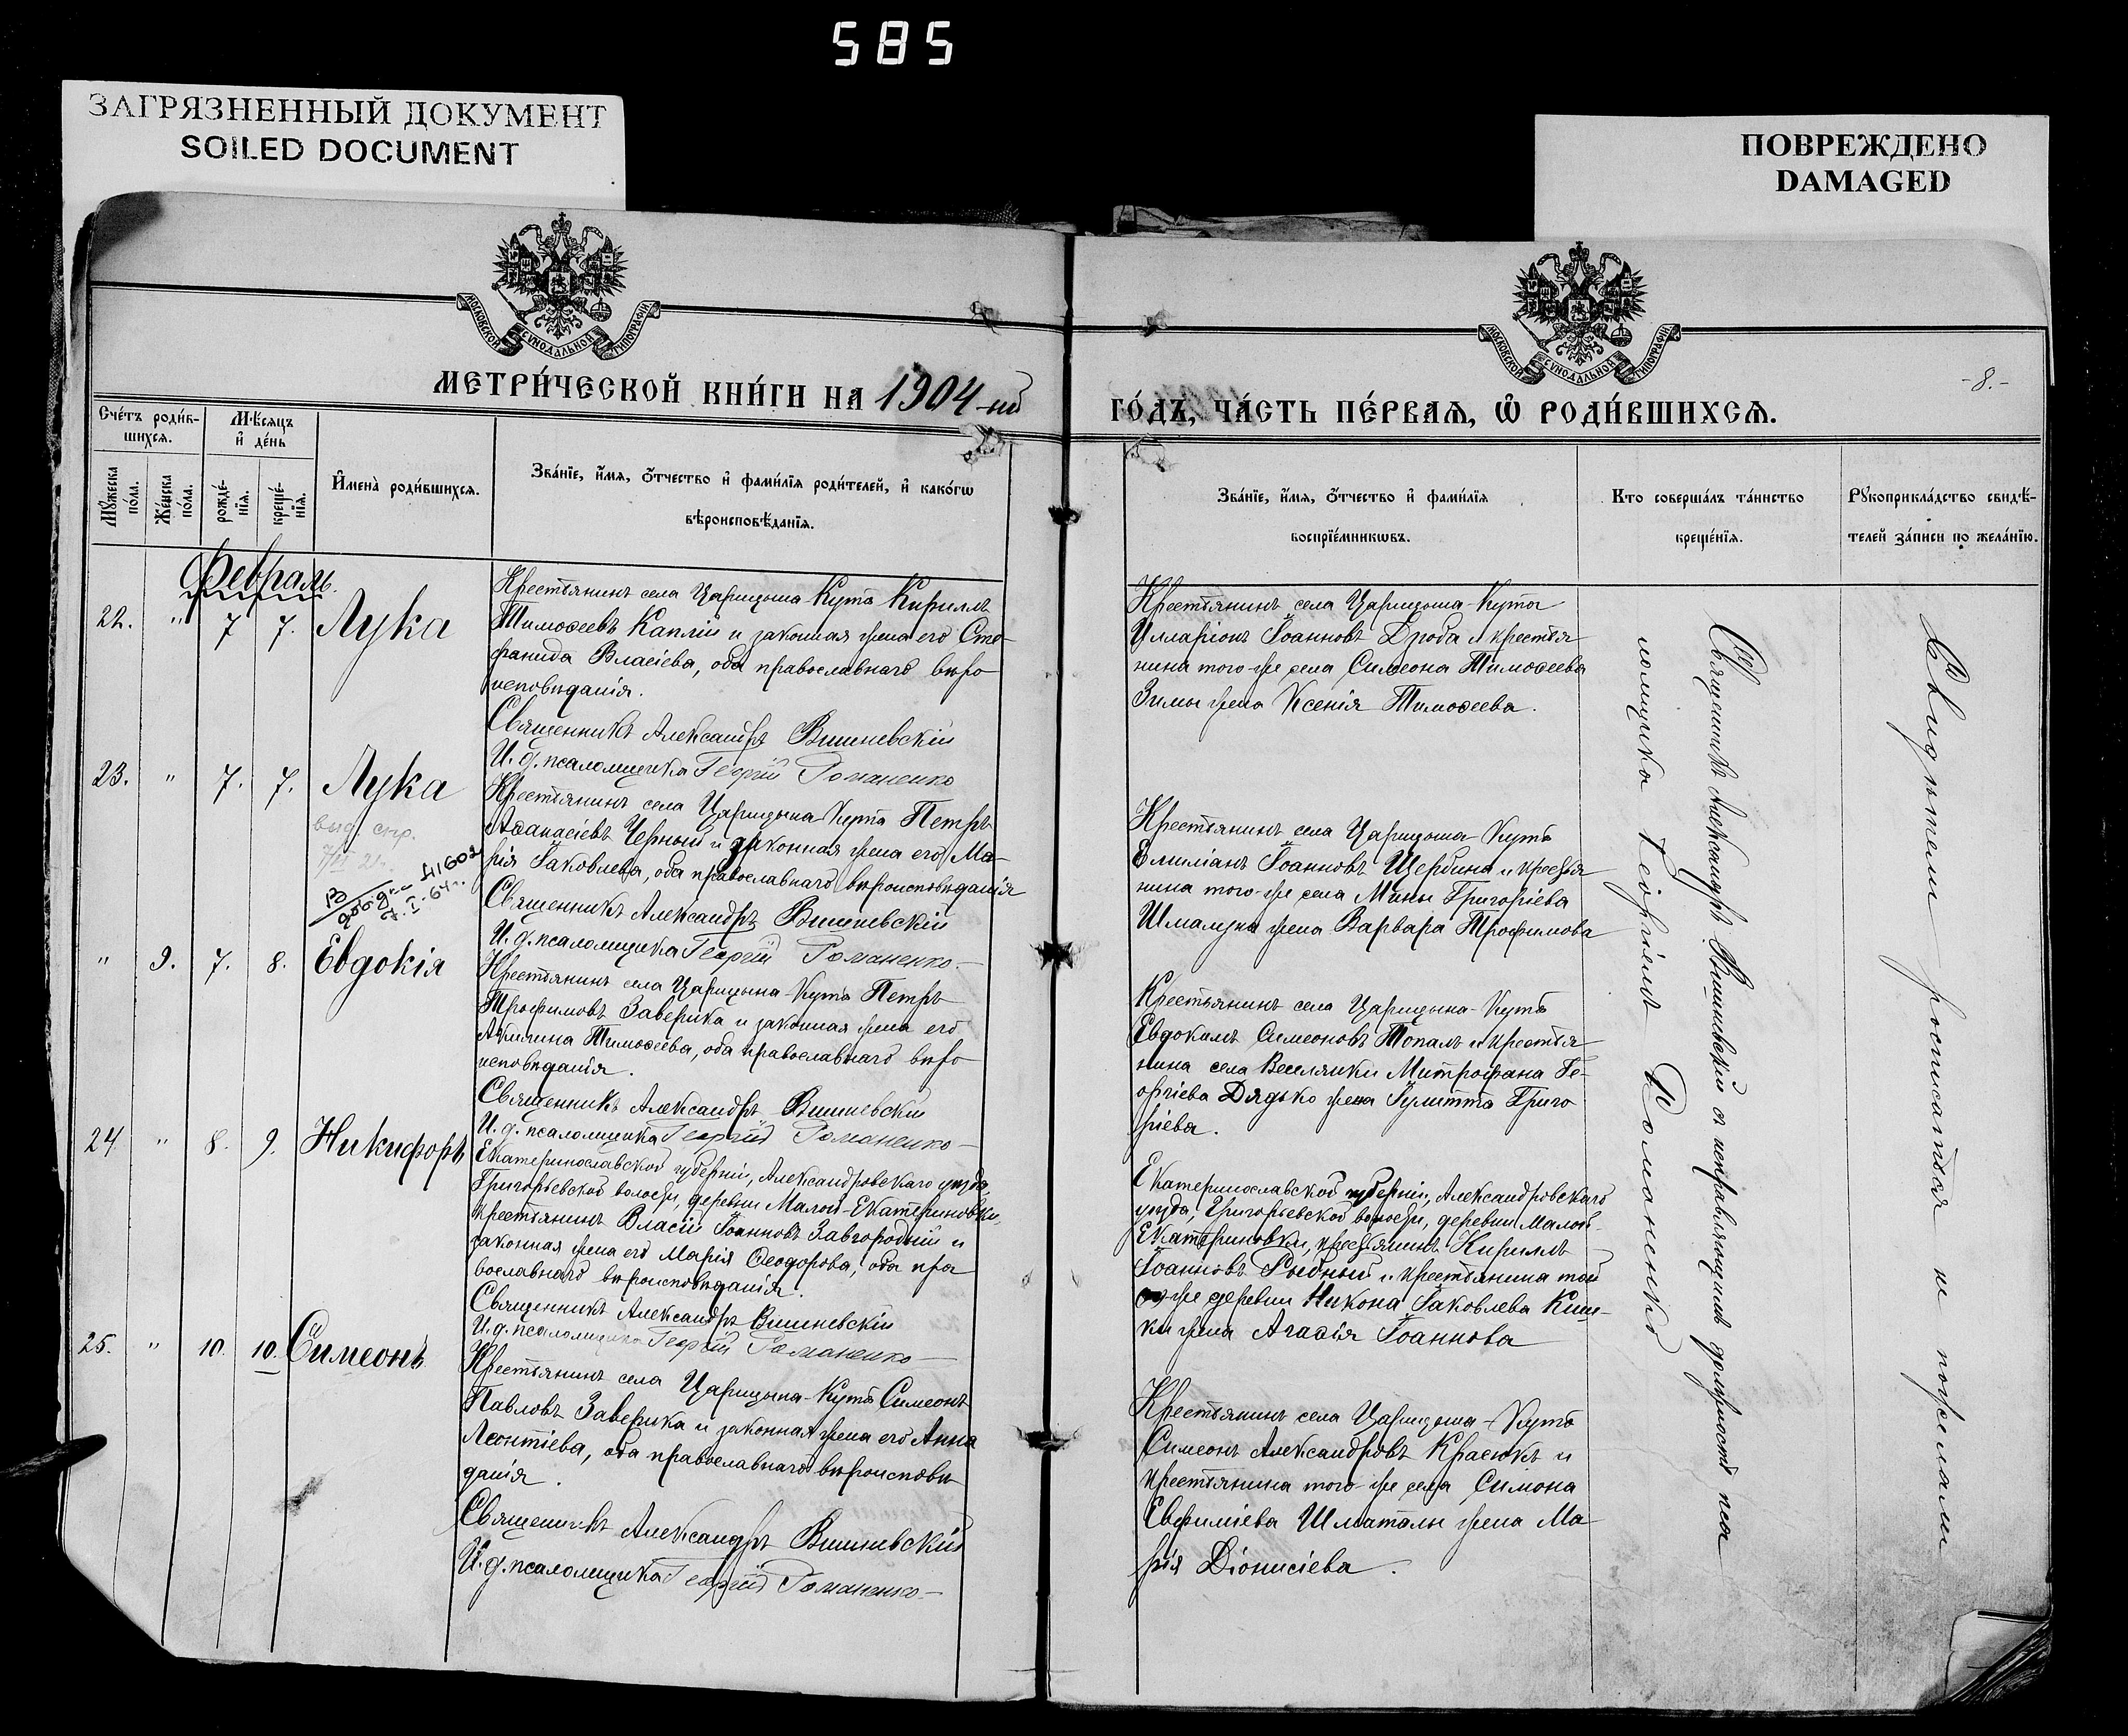 585
ЗАГРЯЗНЕННЫЙ ДОКУМЕНТ
SOILED DOCUMENT
ПОВРЕЖДЕНО
DAMAGED
МОСКОВСКОЙ СУНОДАЛЬНОЙ ТИПОГРАФІИ
МОСКОВСКОЙ СУНОДАЛЬНОЙ ТИПОГРАФІИ
-8.-
МЕТРИ́ЧЕСКОЙ КНИ́ГИ НА 1904-ый
ГО́ДЪ, ЧА́СТЬ ПЕ́РВАѦ, Ѡ҆ РОДИ́ВШИХСѦ.
Сче́тъ роди́в-
шихсѧ.
Мѣ́сѧцъ
и҆ де́нь
Мꙋ́жеска
по́ла.
Же́нска
по́ла.
рожде́-
нїѧ.
креще́-
нїѧ.
И҆мена̀ роди́вшихсѧ.
Зва́нїе, и҆́мѧ, ѻ҆́тчество и҆ фами́лїѧ роди́телей, и҆ како́гѡ
вѣроисповѣ́данїѧ.
Зва́нїе, и҆́мѧ, ѻ҆́тчество и҆ фами́лїѧ
воспрїе́мникѡвъ.
Кто соверша́лъ та́инство
креще́нїѧ.
Рꙋкоприкла́дство свидѣ́-
телей за́писи по жела́нїю.
Февраль.
22. " 7 7. Лука
Крестьянинъ села Царицына-Кута Кириллъ
Тимоѳеевъ Каплій и законная жена его Сте-
фанида Власіева, оба православнаго вѣро
исповѣданія.
Священникъ Александръ Вишневскій
И. д. псаломщика Георгій Романенко
Крестьянинъ села Царицына-Кута
Илларіонъ Іоанновъ Дроба и крестья
нина того-же села Симеона Тимоѳеева
Зимы жена Ксенія Тимоѳеева.
23. " 7. 7. Лука
выд. спр.
41602
7.I-64г.
Крестьянинъ села Царицына-Кута Петръ
Аѳанасіевъ Черный и законная жена его Ма-
рія Іаковлева, оба православнаго вѣроисповѣданія
Священникъ Александръ Вишневскій
И. д. псаломщика Георгій Романенко.
Крестьянинъ села Царицына-Кута
Емиліанъ Іоанновъ Щербина и крестья
нина того-же села Мины Григоріева
жена Варвара Трофимова
" 9. 7. 8. Евдокія
Крестьянинъ села Царицына-Кута Петръ
Трофимовъ Заверика и законная жена его
Акилина Тимоѳеева, оба православнаго вѣро
исповѣданія.
Священникъ Александръ Вишневскій
И. д. псаломщика Георгій Романенко
Крестьянинъ села Царицына-Кута
Евдокимъ Симеоновъ Топалъ и крестья
нина села Веселянки Митрофана Ге-
оргіева Дядько жена Іулитта Григо
ріева.
24. " 8. 9. Никифоръ
Екатеринославской губерніи, Александровскаго уѣзда,
Григорьевской волости, деревни Малой-Екатериновки,
крестьянинъ Власій Іоанновъ Завгородній и
законная жена его Марія Ѳеодорова, оба пра
вославнаго вѣроисповѣданія.
Священникъ Александръ Вишневскій
И. д. псаломщика Георгій Романенко
Екатеринославской губерніи, Александровскаго
уѣзда, Григорьевской волости, деревни Малой-
Екатериновки, крестьянинъ Кириллъ
Іоанновъ Рыбный и крестьянина той
же деревни Никона Іаковлева Киш-
ки жена Агаѳія Іоаннова
25. " 10. 10. Симеонъ
Крестьянинъ села Царицына-Кута Симеонъ
Павловъ Заверика и законная жена его Анна
Леонтіева, оба православнаго вѣроисповѣ
данія.
Священникъ Александръ Вишневскій
И. д. псаломщика Георгій Романенко
Крестьянинъ села Царицына-Кута
Симеонъ Александровъ Красюкъ и
крестьянина того-же села Симона
Евфиміева Шматалы жена Ма-
рія Діонисіева.
Священникъ Александръ Вишневскій съ исправляющимъ должность пса
ломщика Георгіемъ Романенко
Свидѣтели росписаться не пожелали